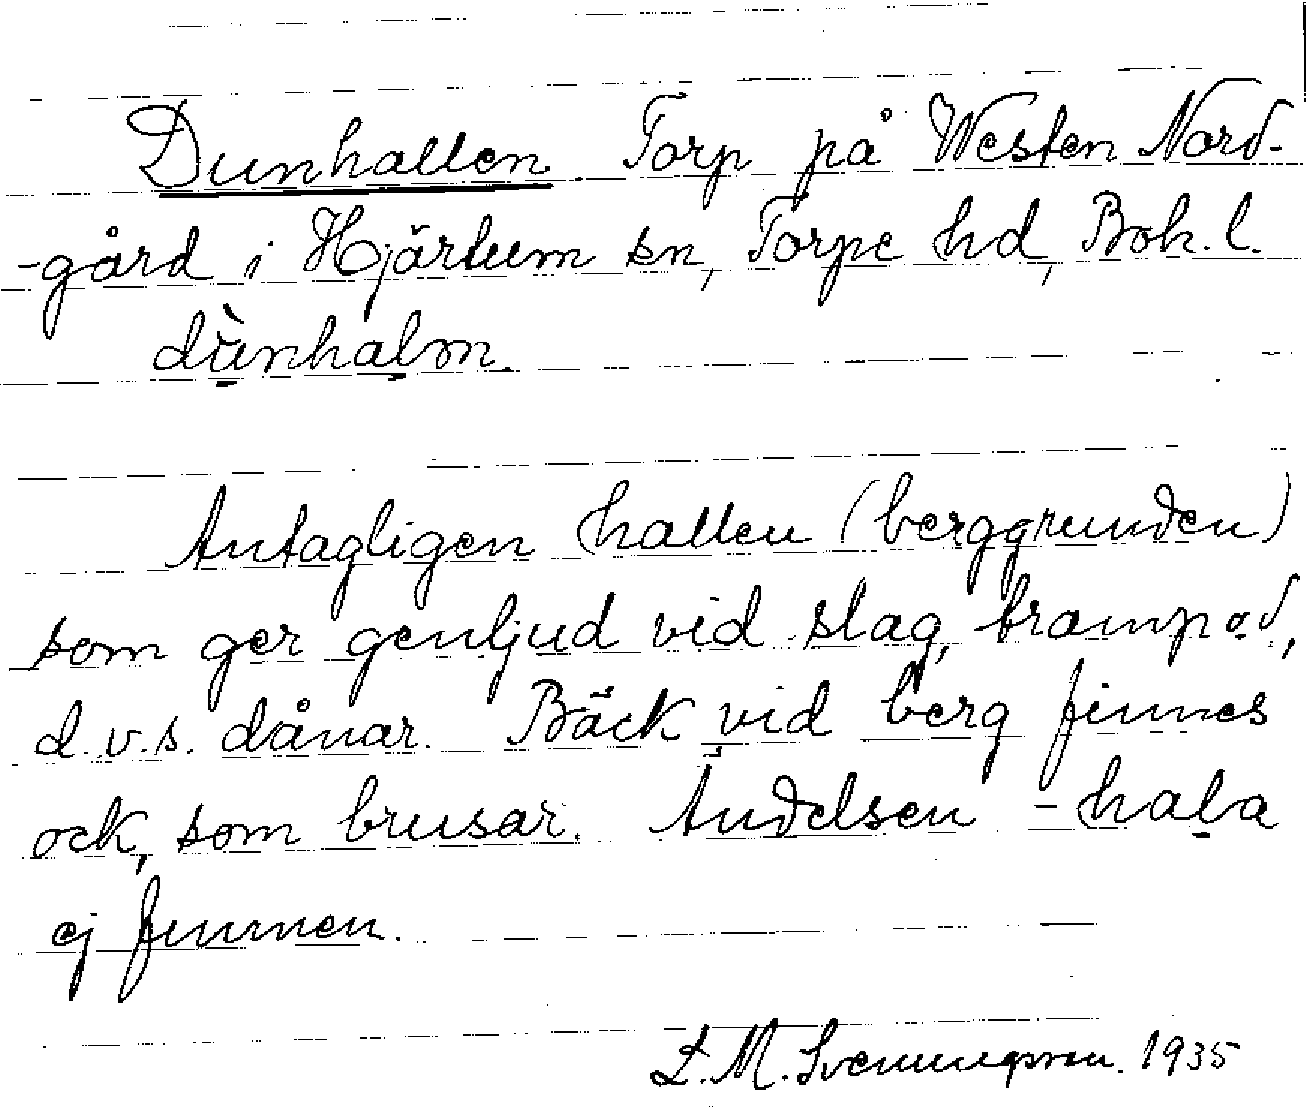 Dunhallen. Torp på Westen Nord-
-gård i Hjärtum sn, Torpe hd, Boh. l.
dùnhalm.
Antagligen hallen (berggrunden)
som ger genljud vid slag, tramp o.d.,
d.v.s. dånar. Bäck vid berg finnes
ock, som brusar. Ändelsen -hala
ej funnen.
L. M. Svenungsson. 1935